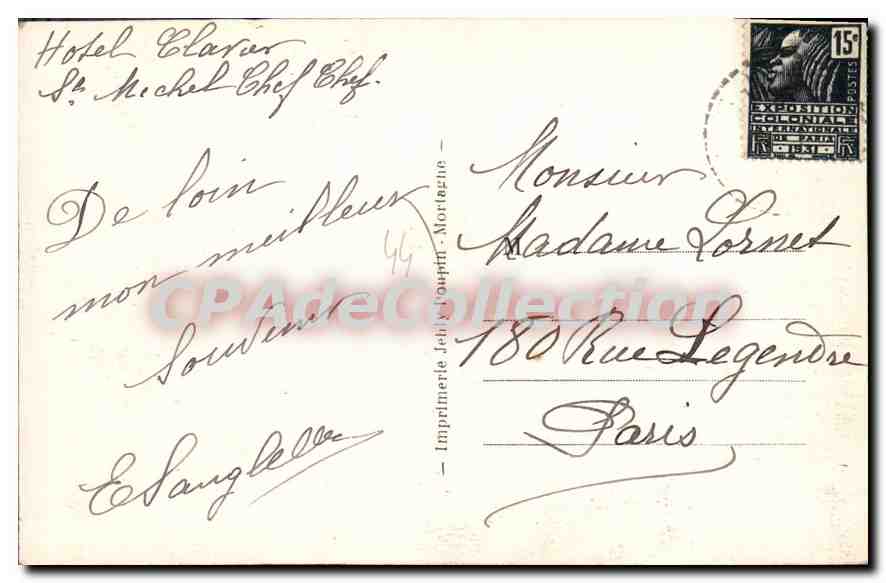 Hotel Clavier
St Michel Chef Chef.
De loin
mon meilleur
souvenir
44
Imprimerie Jehly Poupin - Mortagne
Monsieur
Madame Lorinet
180 Rue Legendre
Paris
15c
POSTES
EXPOSITION
COLONIALE
INTERNATIONALE
DE PARIS
1931
CPAdeCollection